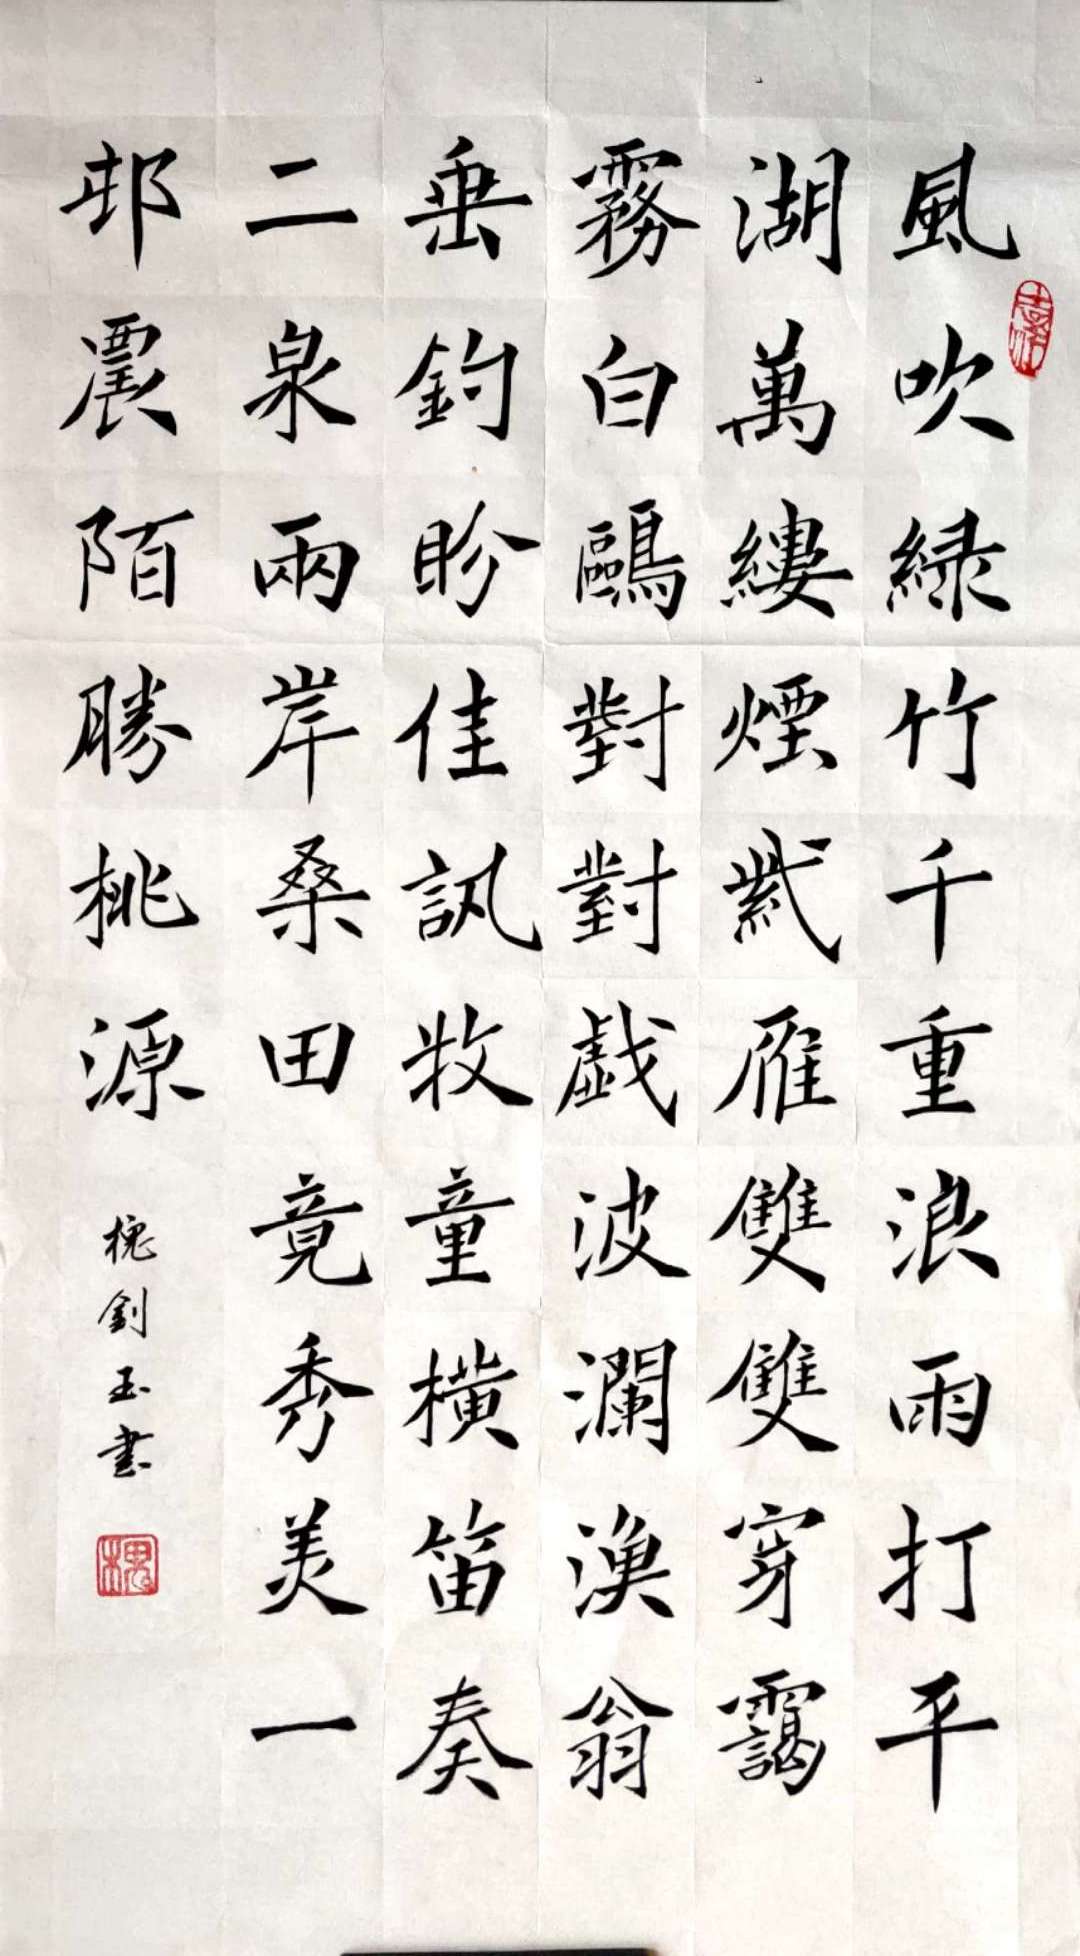 風吹綠竹千重浪雨打平
湖萬縷煙紫雁雙雙穿靄
霧白鷗對對戲波瀾漁翁
垂釣盼佳訊牧童橫笛奏
二泉兩岸桑田竟秀美一
邨農陌勝桃源
槐劉玉書
槐